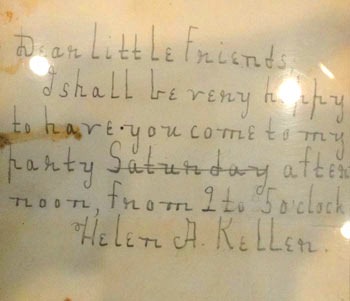 Dear little friends,
I shall be very happy
to have you come to my
party Saturday after
noon, from 2 to 5 o'clock
Helen A. Keller.